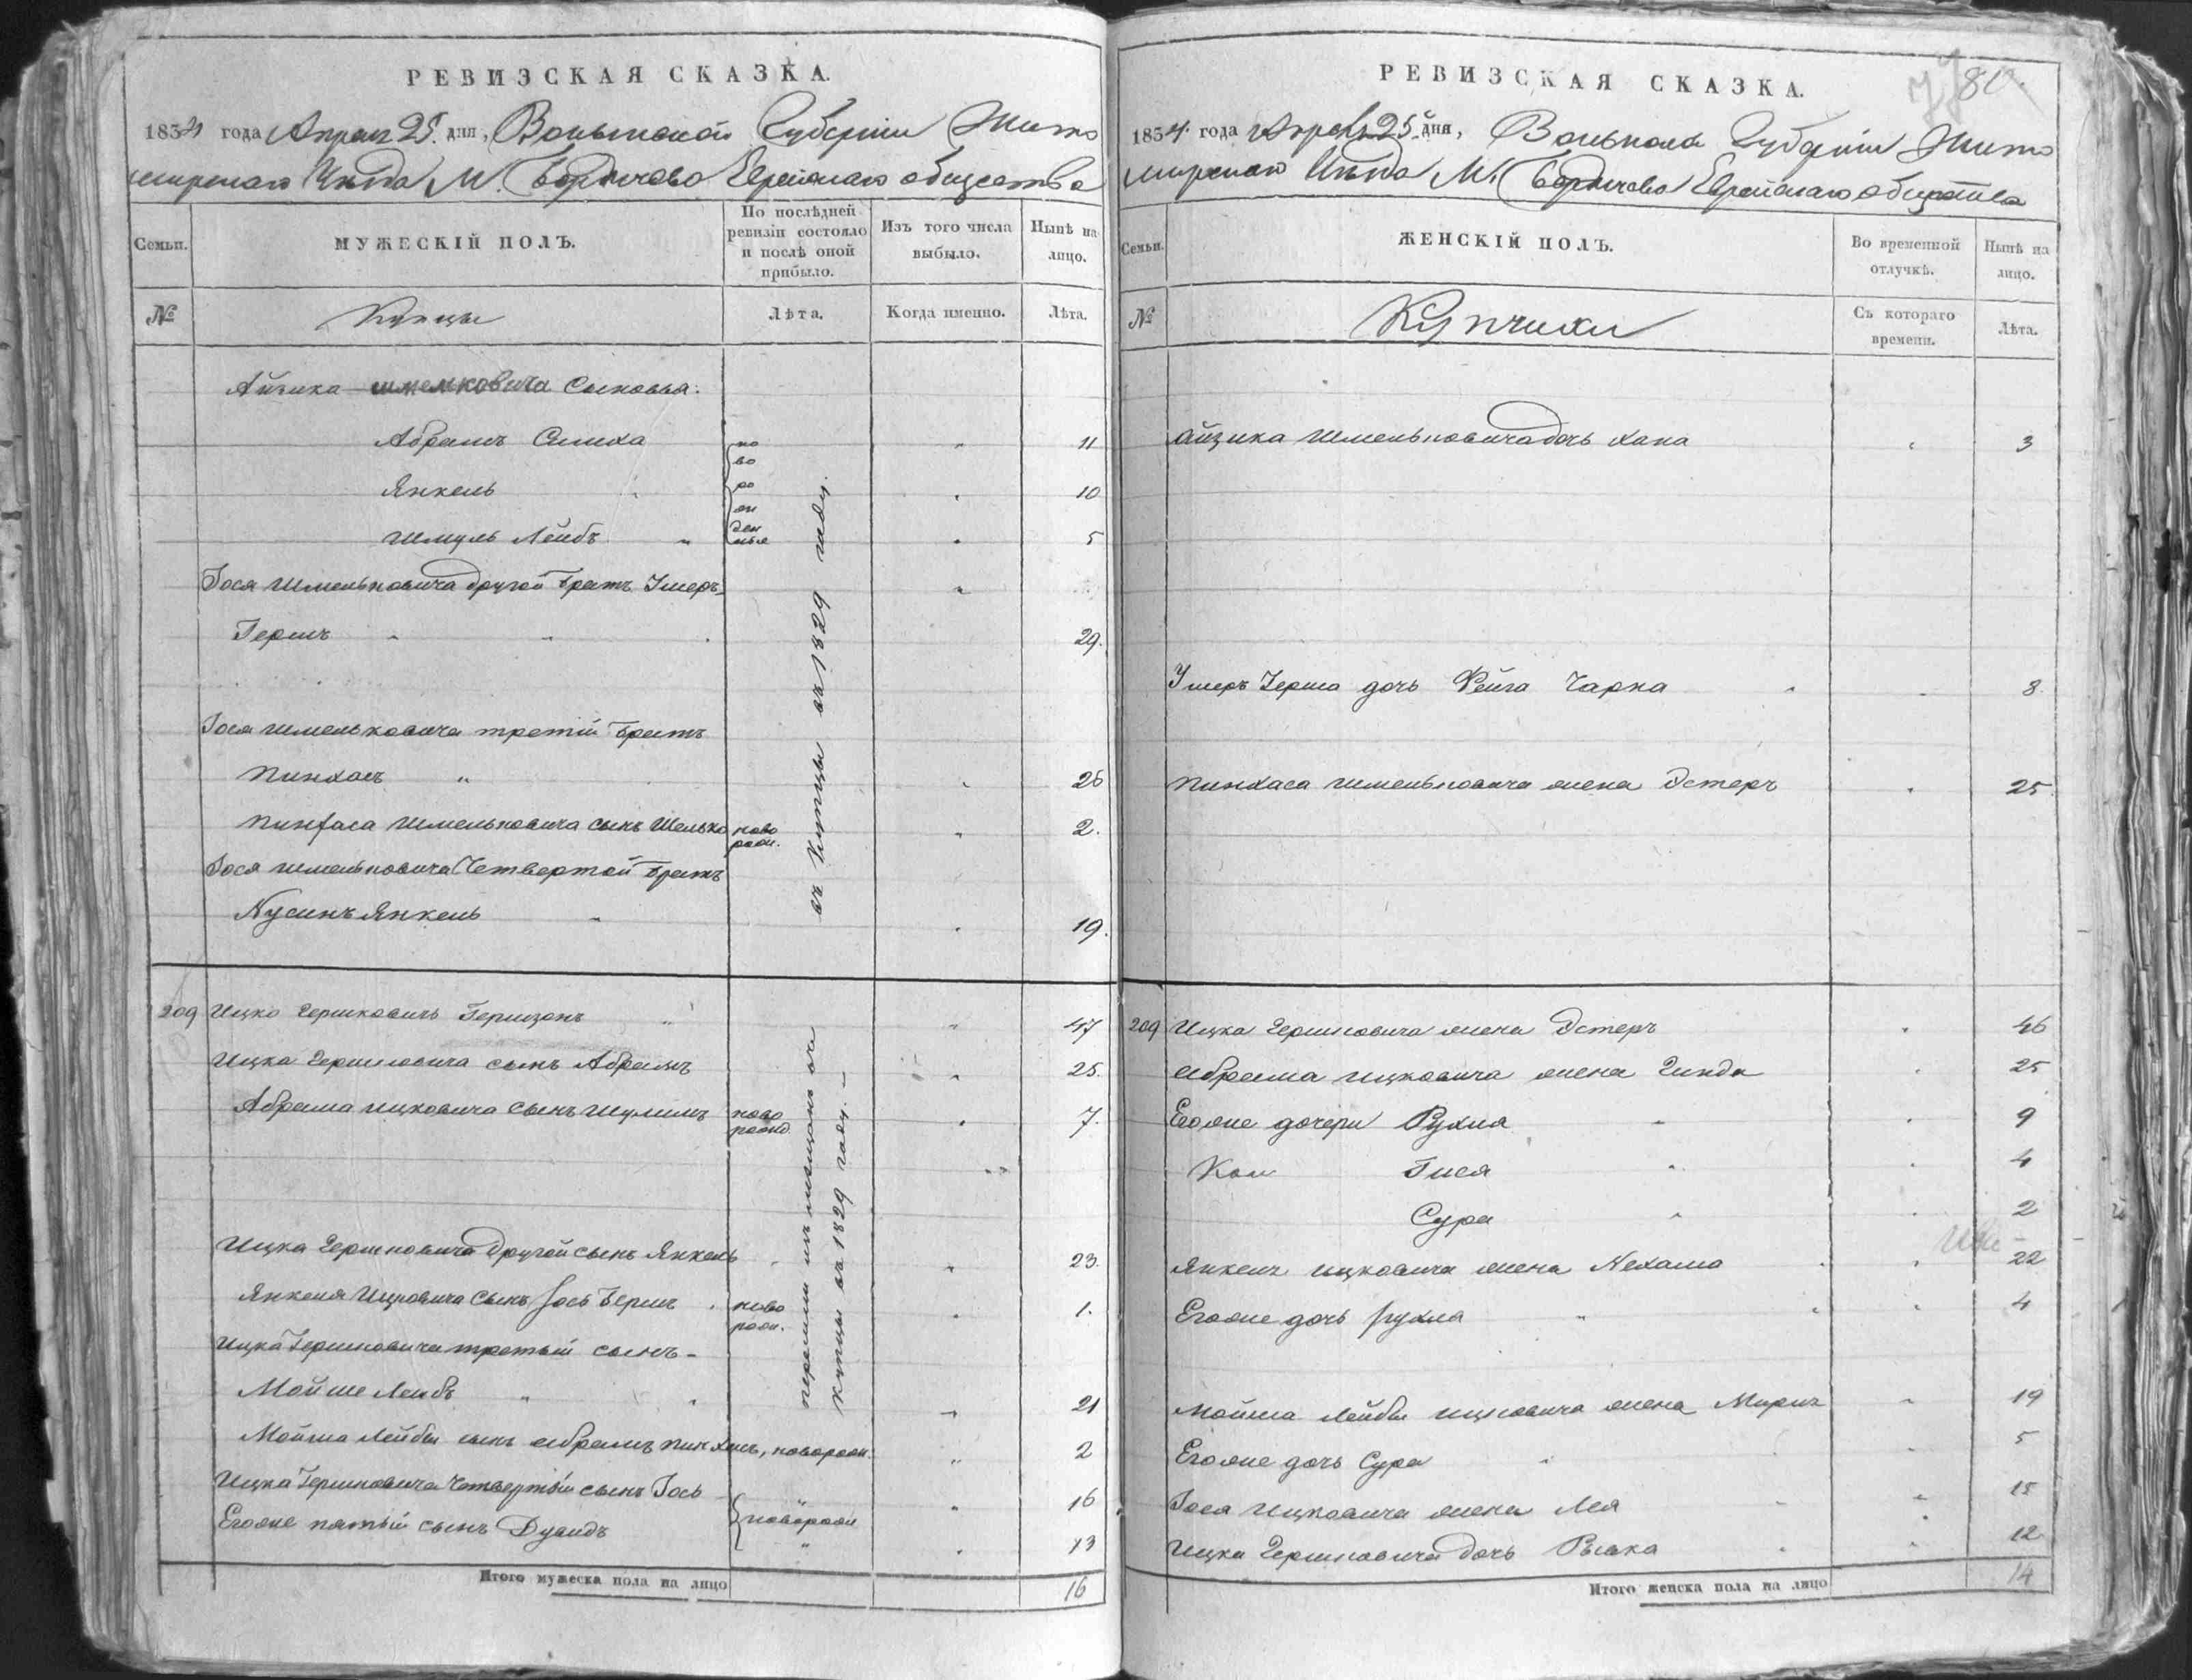 РЕВИЗСКАЯ СКАЗКА.
1834 года Апреля 25. дня, Волынской Губернiи Жито
мирскаго Уезда М. Бердичева Еврейскаго общества
Семьи.
МУЖЕСКIЙ ПОЛЪ.
По послѣдней ревизiи состояло и послѣ оной прибыло.
Изъ того числа выбыло.
Нынѣ на лицо.
№
Купцы
Лѣта.
Когда именно.
Лѣта.
Айзика Шмельковича Сыновья.
Абрамъ Симха 11
Янкель 10
Шмуль Лейбъ 5
новорожденные
Iося Шмельковича другой братъ Ушеръ
Гершъ 29.
Iося Шмельковича третiй братъ
Пинхасъ 26
Пинхаса Шмельковича сынъ Шмелько новорож. 2.
Iося Шмельковича Четвертой братъ
Нусинъ Янкель 19.
въ 1829 году.
209 Ицко Гершковичъ Гершзонъ 47
Ицка Гершковича сынъ Абрамъ 25.
Абрама Ицковича сынъ Шулимъ новорожд. 7.
Ицка Гершковича другой сынъ Янкель 23.
Янкеля Ицковича сынъ Iось Бершъ новорож. 1.
Ицка Гершковича третьiй сынъ
Мойше Лейбъ 21
Мойша Лейбы сынъ Абрамъ Пинхасъ, новорож. 2
Ицка Гершковича четвертый сынъ Iось 16
Егоже пятый сынъ Дувидъ 13
новорож
купцы въ 1829 году.
Итого мужеска пола на лицо 16
РЕВИЗСКАЯ СКАЗКА.
80.
1834 года Апреля 25 дня, Волынской Губернiи Жито
мирскаго Уезда М. Бердичева Еврейскаго общества
Семьи.
ЖЕНСКIЙ ПОЛЪ.
Во временной отлучкѣ.
Нынѣ на лицо.
№
Купчихи
Съ котораго времени.
Лѣта.
Айзика Шмельковича дочь Хана 3
Ушеръ Герша дочь Фейга Чарна 8.
Пинхаса Шмельковича жена Эстеръ 25
209 Ицка Гершковича жена Эстеръ 46
Абрама Ицковича жена Гинда 25
Егоже дочери Рухля 9
Гися 4
Сура 2
Янкеля Ицковича жена Нехама 22
Егоже дочь Рухля 4
Мойша Лейбы Ицковича жена Миримъ 19
Егоже дочь Сура 5
Iося Ицковича жена Лея 15
Ицка Гершковича дочь Рывка 12
Итого женска пола на лицо 14